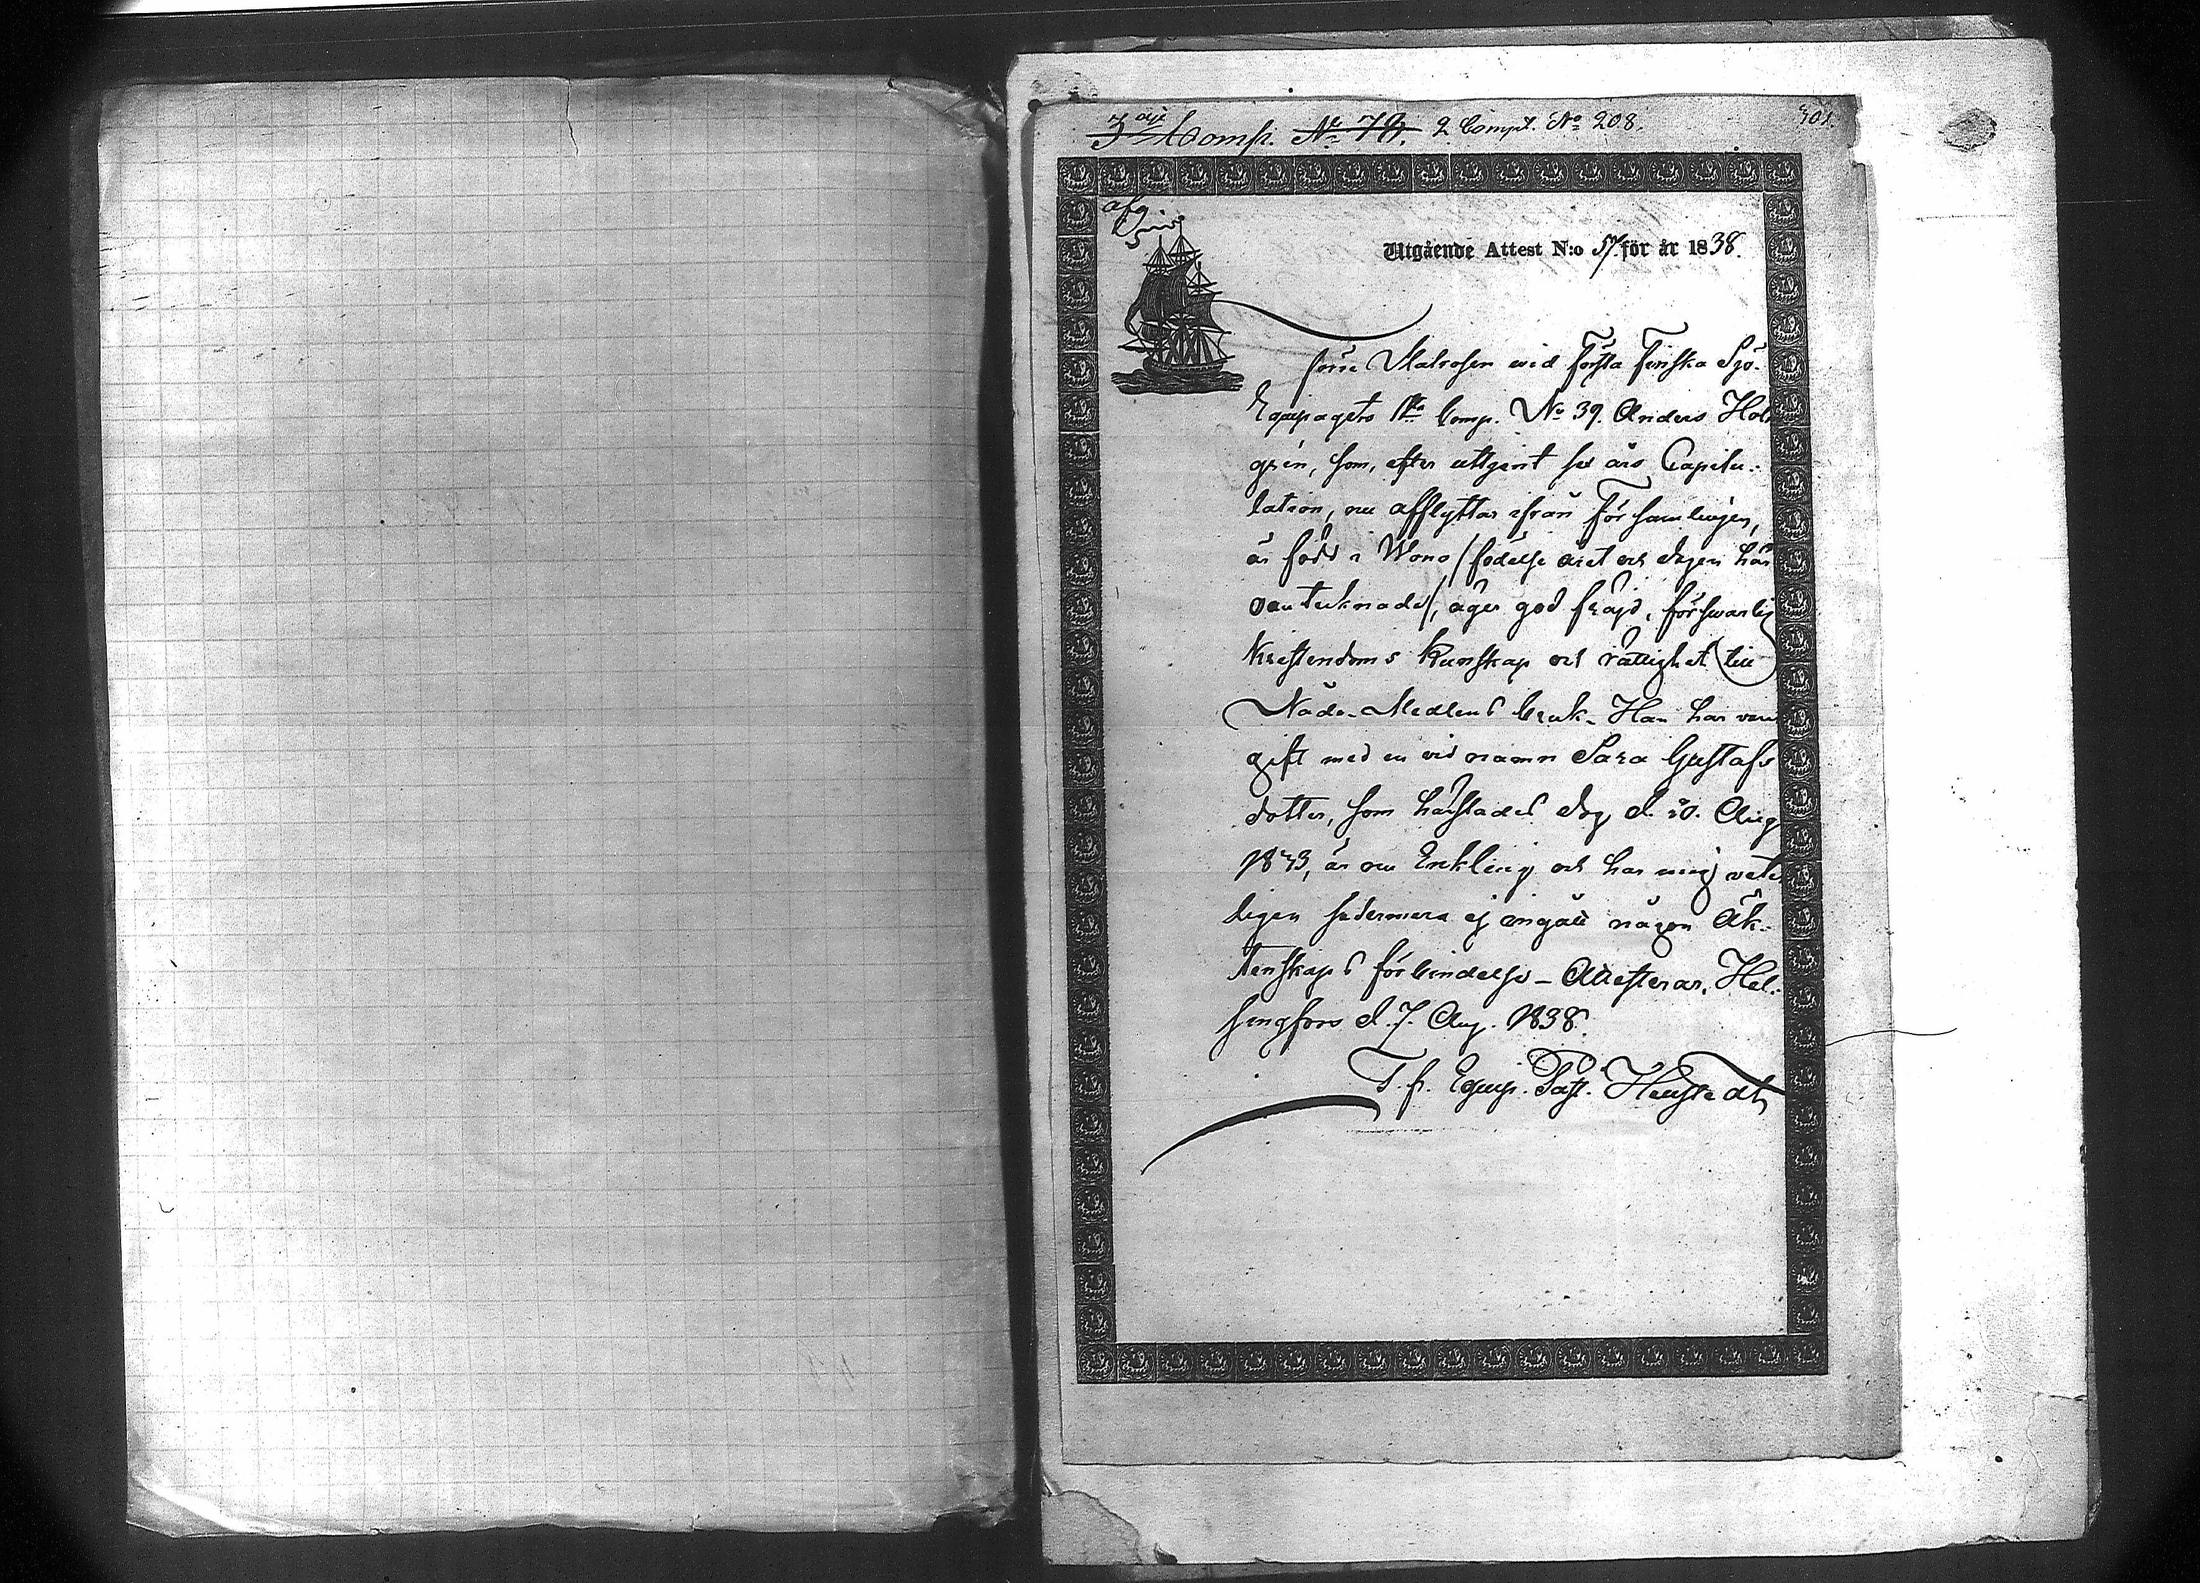 3dje Comp. No 78. 2 Compt. No 208.
301.
afg
Utgående Attest N:o 57. för år 1838.
förre Matrosen wid Första Finska Sjö-
Equipagets 1sta Comp. No 39. Anders Hol
grén, som, efter uttgent sex års Capitu-
lation, nu afflyttar ifrån Församlingen,
är född i Wono (födelse året och dagen här
oantecknade), äger god frägd, försvarlig
Kristendoms Kunskap och rättighet till
Nåde-Medlens bruk. Han har varit
gift med en vid namn Sara Gustafs
dotter, som härstädes dog d. 20. Aug
1833, är nu Enkling och har mig veter
ligen sedermera ej ingått någon Äk-
tenskaps förbindelse – Attesterar. Hel-
singfors d. 7. Aug. 1838.
T. f. Equip. Past.